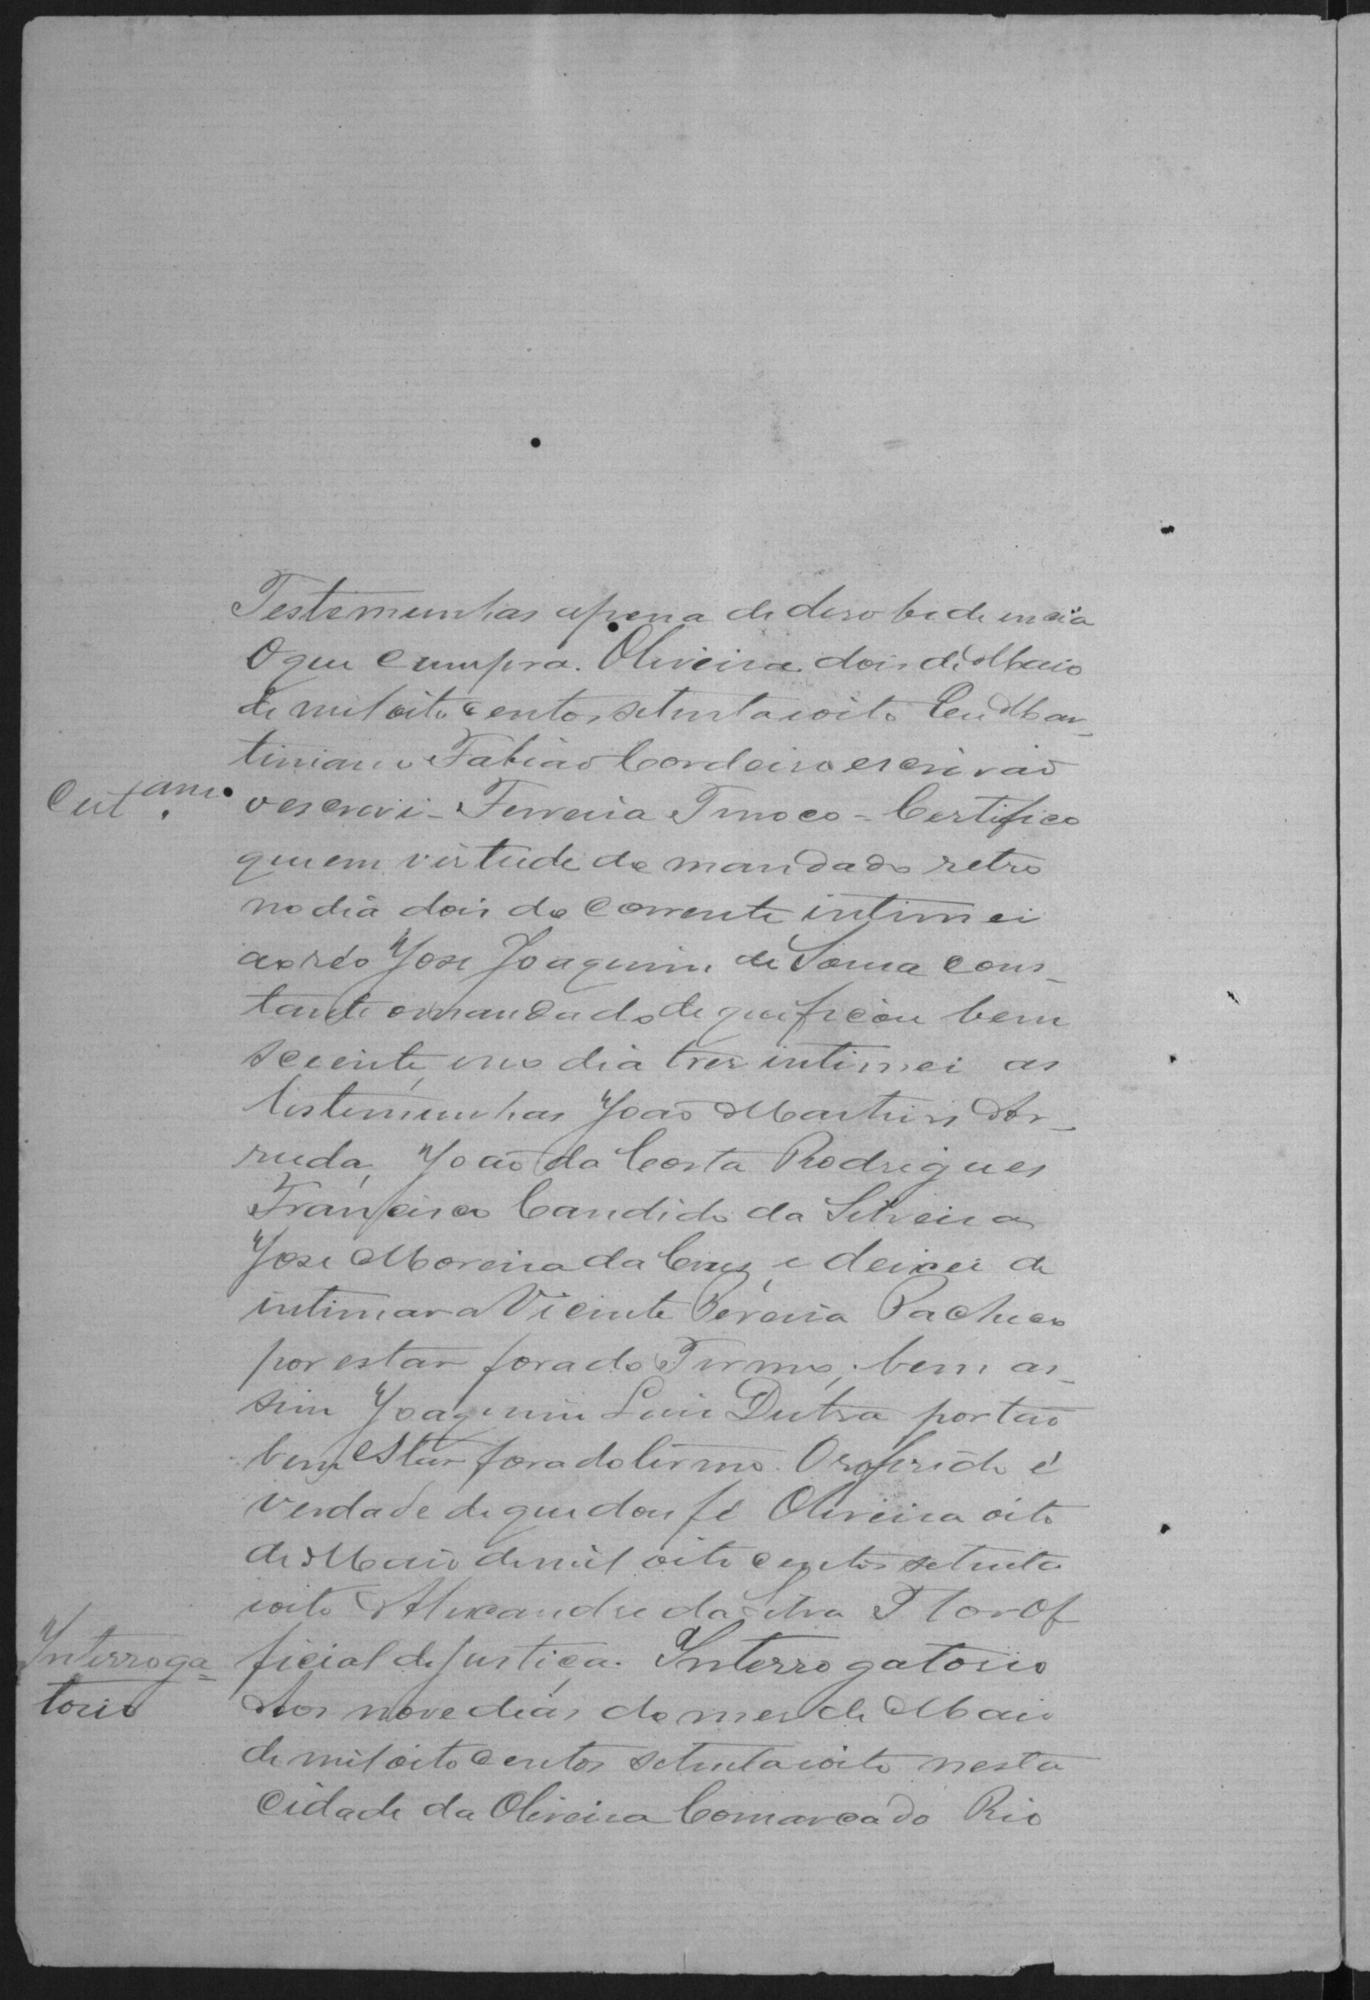 Testemunhas apena de desobediencia
O que cumpra. Oliveira dois de Maio
de mil oito centos setenta ioito Eu Mar-
tiniano Fabião Cordeiro escrivão
o escrevi - Ferreira Tinoco - Certifico
que em virtude do mandado retro
no dia dois do corrente intimei
ao réo José Joaquim de Souza cons-
tante o mandado de que ficou bem
sciente, e no dia tres intimei as
testemunhas João Martins Ar-
ruda, João da Costa Rodrigues
Francisco Candido da Silveira
José Moreira da Cruz, e deixei de
intimar a Vicente Pereira Pacheco
por estar fora do Termo, bem as-
sim Joaquim Luis Dutra por tao
bem estar fora do termo. O referido é
verdade de que dou fé Oliveira oito
de Maio de mil oito centos setenta
ioito Alexandre da Silva Flor Of
ficial de Justiça. Interrogatorio
Aos nove dias do mes de Maio
de mil oito centos setenta ioito nesta
Cidade da Oliveira Comarca do Rio
Interroga=
torio